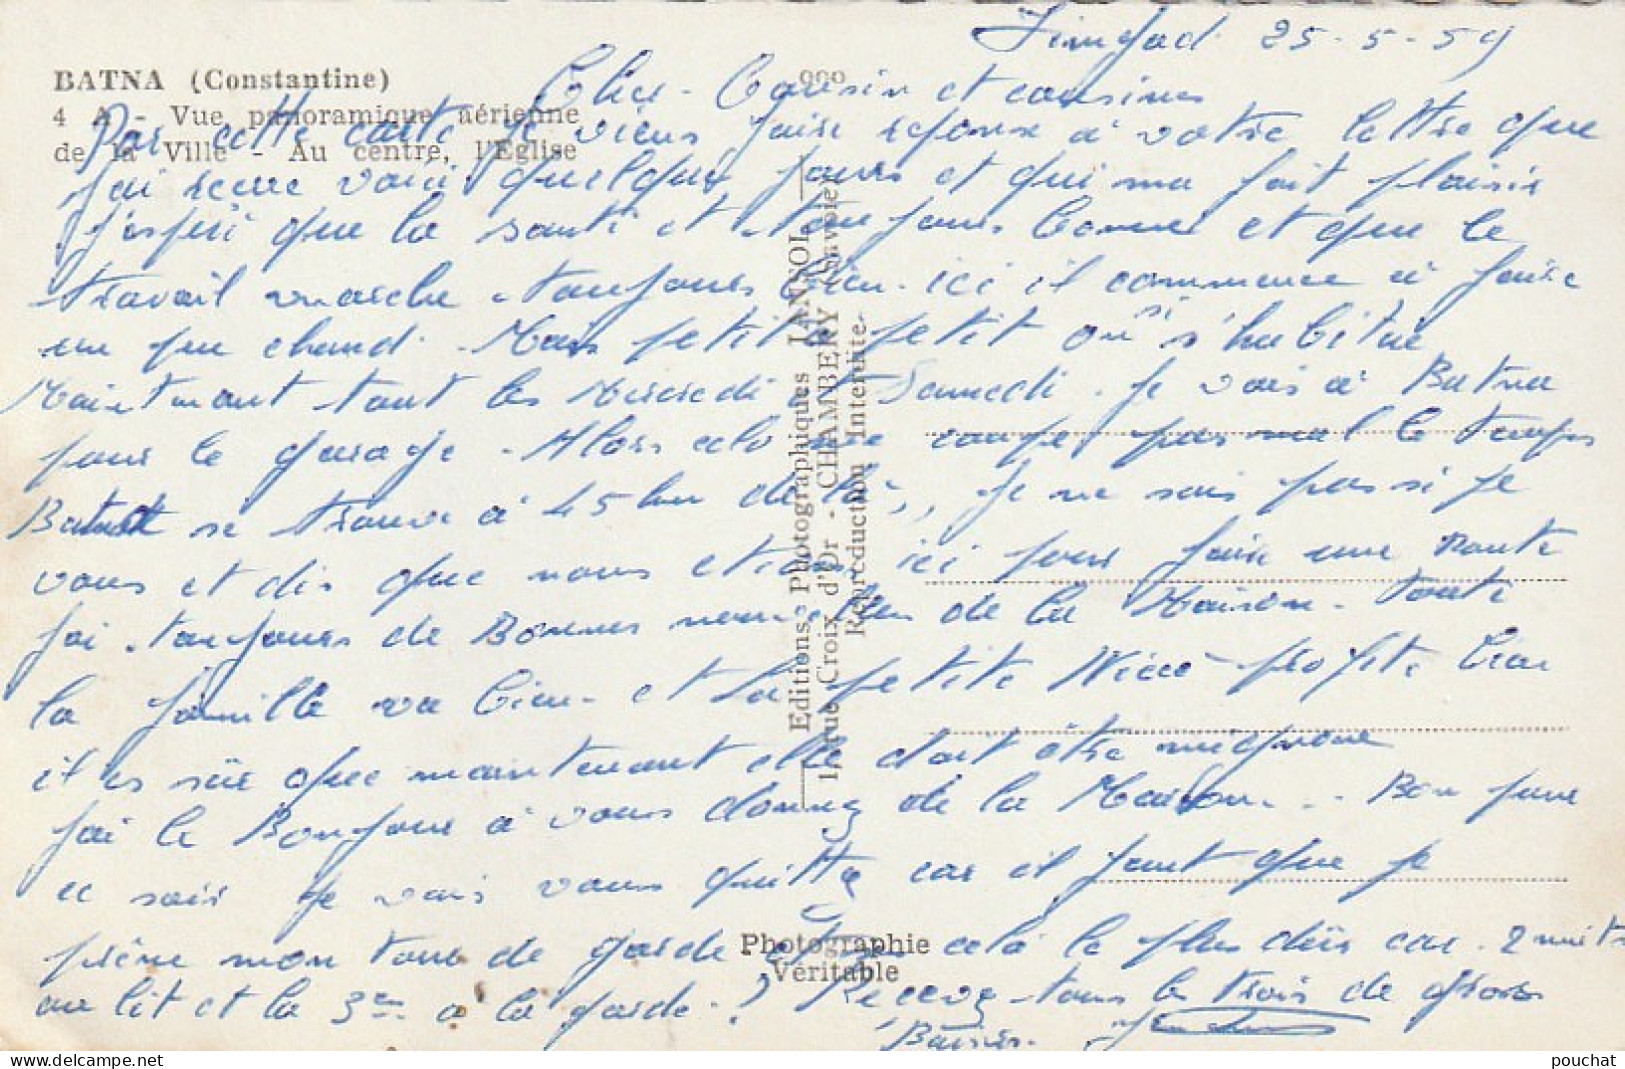 Timgad 25-5-59
BATNA (Constantine)
4 A - Vue panoramique aérienne
de la Ville - Au centre, l'Eglise
Cher - Cousin et cousines
Par cette carte je viens faire reponse à votre lettre que
j'ai recue voici quelques jours et qui ma fait plaisir
j'espei que la santé et toujours bonne et que le
travail marche toujours bien. ici il commence à faire
un peu chaud. Mais petit à petit on si s'habitue
Maintenant tout les Mercredi et Samedi. Je vais à Batna
pour le garage. Alors cela me coupe pas mal le temps
Batna se trouve à 45 km de là,, Je ne sais pas si je
vous et dis que nous etions ici pour faire une Route
j'ai toujours de Bonnes nouvelles de la Maison. Toute
la famille va bien. et la petite Nièce profite bien
il es sûr que maintenant elle doit être mignone
j'ai le Bonjour à vous donnez de la Maison... Bon pour
ce soir je vais vous quittez car il faut que je
prène mon tour de garde cela le plus dûr car. 2 nuits
au lit et la 3em à la garde.? Recevez tous les trois de gross
Baisers.
Editions Photographiques IANSOL
17, rue Croix d'Or - CHAMBERY (Savoie)
Reproduction Interdite
Photographie
Véritable
pouchat